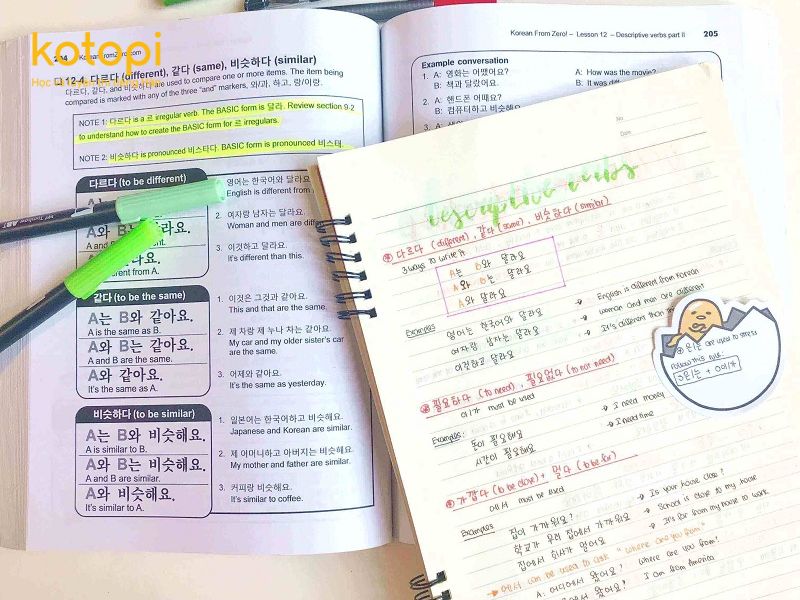 kotopi
204
KoreanFromZero.com
12-4 다르다 (different), 같다 (same), 비슷하다 (similar)
다르다, 같다, and 비슷하다 are used to compare one or more items. The item being
compared is marked with any of the three "and" markers, 와/과, 하고, 랑/이랑.
NOTE 1: 다르다 is a 르 irregular verb. The BASIC form is 달라. Review section 9-2
to understand how to create the BASIC form for 르 irregulars.
NOTE 2: 비슷하다 is pronounced 비스타다. BASIC form is pronounced 비스태
다르다 (to be different)
A는
A와 B는 달라요.
A and B
different from A.
1. 영어는 한국어와 달라요
English is different from
2. 여자랑 남자는 달라요.
Woman and men are diffe
3. 이것하고 달라요.
It's different than this.
같다 (to be the same)
A는 B와 같아요.
A is the same as B.
A와 B는 같아요.
A and B are the same.
A와 같아요.
It's the same as A.
1. 이것은 그것과 같아요.
This and that are the same.
2. 제 차랑 제 누나 차는 같아요.
My car and my older sister's car
are the same.
3. 어제와 같아요.
It's the same as yesterday.
비슷하다 (to be similar)
A는 B와 비슷해요.
A is similar to B.
A와 B는 비슷해요.
A and B are similar.
A와 비슷해요.
It's similar to A.
1. 일본어는 한국어하고 비슷해요.
Japanese and Korean are similar.
2. 제 어머니하고 아버지는 비슷해요.
My mother and father are similar.
3. 커피랑 비슷해요.
It's similar to coffee.
Korean From Zero! – Lesson 12 – Descriptive verbs part II
205
Example conversation
1. A: 영화는 어땠어요?
B: 책과 달랐어요.
A: How was the movie?
B: It was diffe
2. A: 핸드폰 어때요?
B: 컴퓨터하고 비슷해요
3. A:
No
Date
descriptive verbs
다르다 (different), 같다 (same), 비슷하다 (similar)
3 ways to write it
A는 B와 달라요
A와 B는 달라요
A와 달라요
Examples
영어는 한국어와 달라요 → English is different from Korean
여자랑 남자는 달라요 → woman and men are different
이것하고 달라요 → It's different than
필요하다 (to need), 필요없다 (to not need)
이/가 must be used
Examples:
돈이 필요해요 → I need money
시간이 필요해요 → I need time
가깝다 (to be close) + 멀다 (to be far)
에서 must be used
Examples
집이 가까워요? → Is your house close?
학교가 우리 집에서 가까워요 → School is close to my house
집에서 회사가 멀어요 → It's far from my house to work
→ 에서 can be used to ask "where are you from"
A: 어디에서 왔어요? where are you from?
에서 왔어요 I am from America
은/는 are used to stress
Follow this rule: